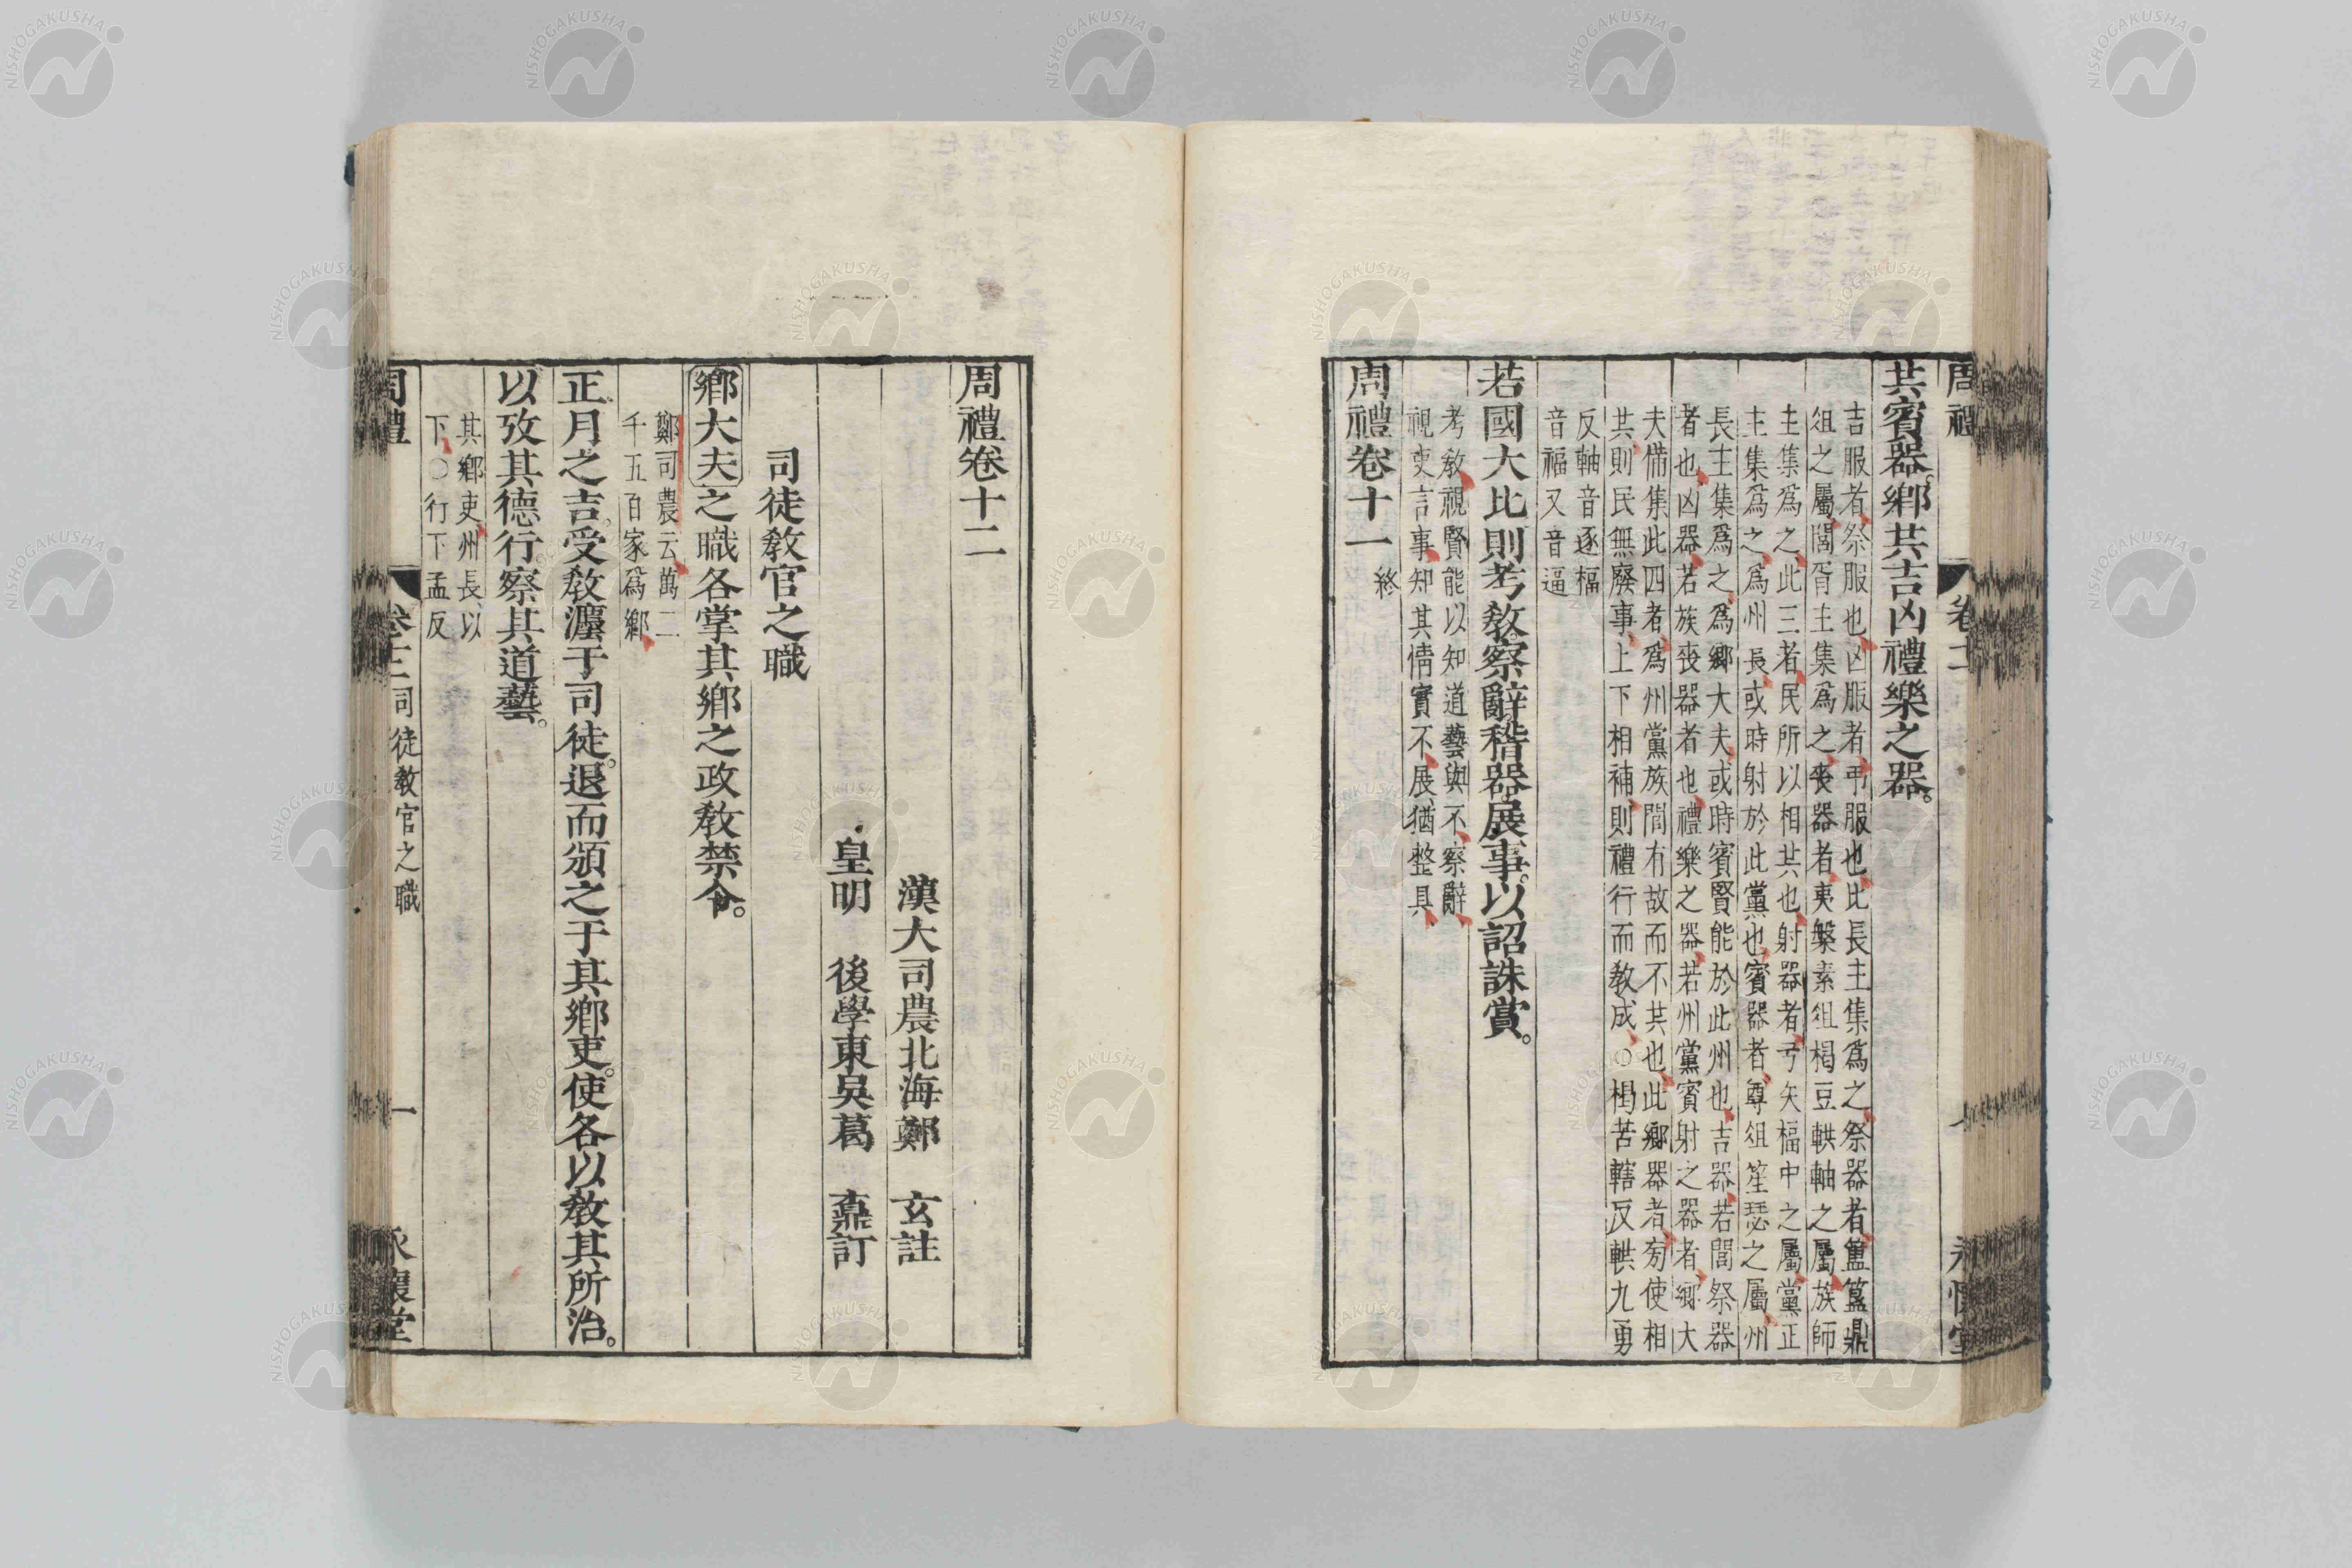 周禮 卷十一
共賓器鄉共吉凶禮樂之器。
吉服者、祭服也、凶服者、弔服也、比長主集爲之、祭器者、簠簋鼎
俎之屬、閭胥主集爲之、喪器者、夷槃素俎楬豆輁軸之屬、族師
主集爲之、此三者、民所以相共也、射器者、弓矢福中之屬、黨正
主集爲之、爲州長或時射於此黨也、賓器者、尊俎笙瑟之屬、州
長主集爲之、爲鄉大夫、或時賓賢能於此州也、吉器、若閭祭器
者也、凶器、若族喪器者也、禮樂之器、若州黨賓射之器者、鄉大
夫備集此四者、爲州黨族閭有故而不共也、此鄉器者、旁使相
共、則民無廢事、上下相補、則禮行而教成、○楬苦轄反輁九勇
反軸音逐楅
音福又音逼
若國大比則考教。察辭稽器。展事。以詔誅賞。
考教、視賢能以知道藝與不、察辭、
視吏言事、知其情實不、展、猶整具、
周禮卷十一 終
周禮卷十二
漢大司農北海鄭 玄註
皇明 後學東吳葛 鼒訂
司徒教官之職
鄉大夫之職各掌其鄉之政教禁令。
鄭司農云、萬二
千五百家爲鄉、
正月之吉。受教灋于司徒。退而頒之于其鄉吏。使各以教其所治。
以攷其德行。察其道藝。
其鄉吏、州長、以
下、○行下孟反
周禮 卷十二 司徒教官之職 一 永懷堂